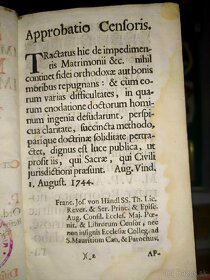 Approbatio Censoris.
TRactatus hic de impedimen-
tis Matrimonii &c. nihil
continet fidei orthodoxæ aut bonis
moribus repugnans: & cùm eo-
rum varias difficultates, in quan-
rum enodatione doctorum homi-
num ingenia desudarunt, per-
spicua claritate, succincta methodo,
parique doctrinæ soliditate pertra-
ctet, dignus est luce publica, ut
prosit iis, qui Sacræ, qui Civili
jurisdictioni præsunt. Aug. Vind.
1. August. 1744.
Franc. Jos. von Händl SS. Th. Lic.
Rever. & Ser. Princ. & Episc.
Aug. Consil. Eccles. Maj. Pœ-
nit. & Librorum Censor, nec
non insignis Ecclesiæ Colleg. ad
S. Mauritium Can. & Parochus.
X 2 AP-